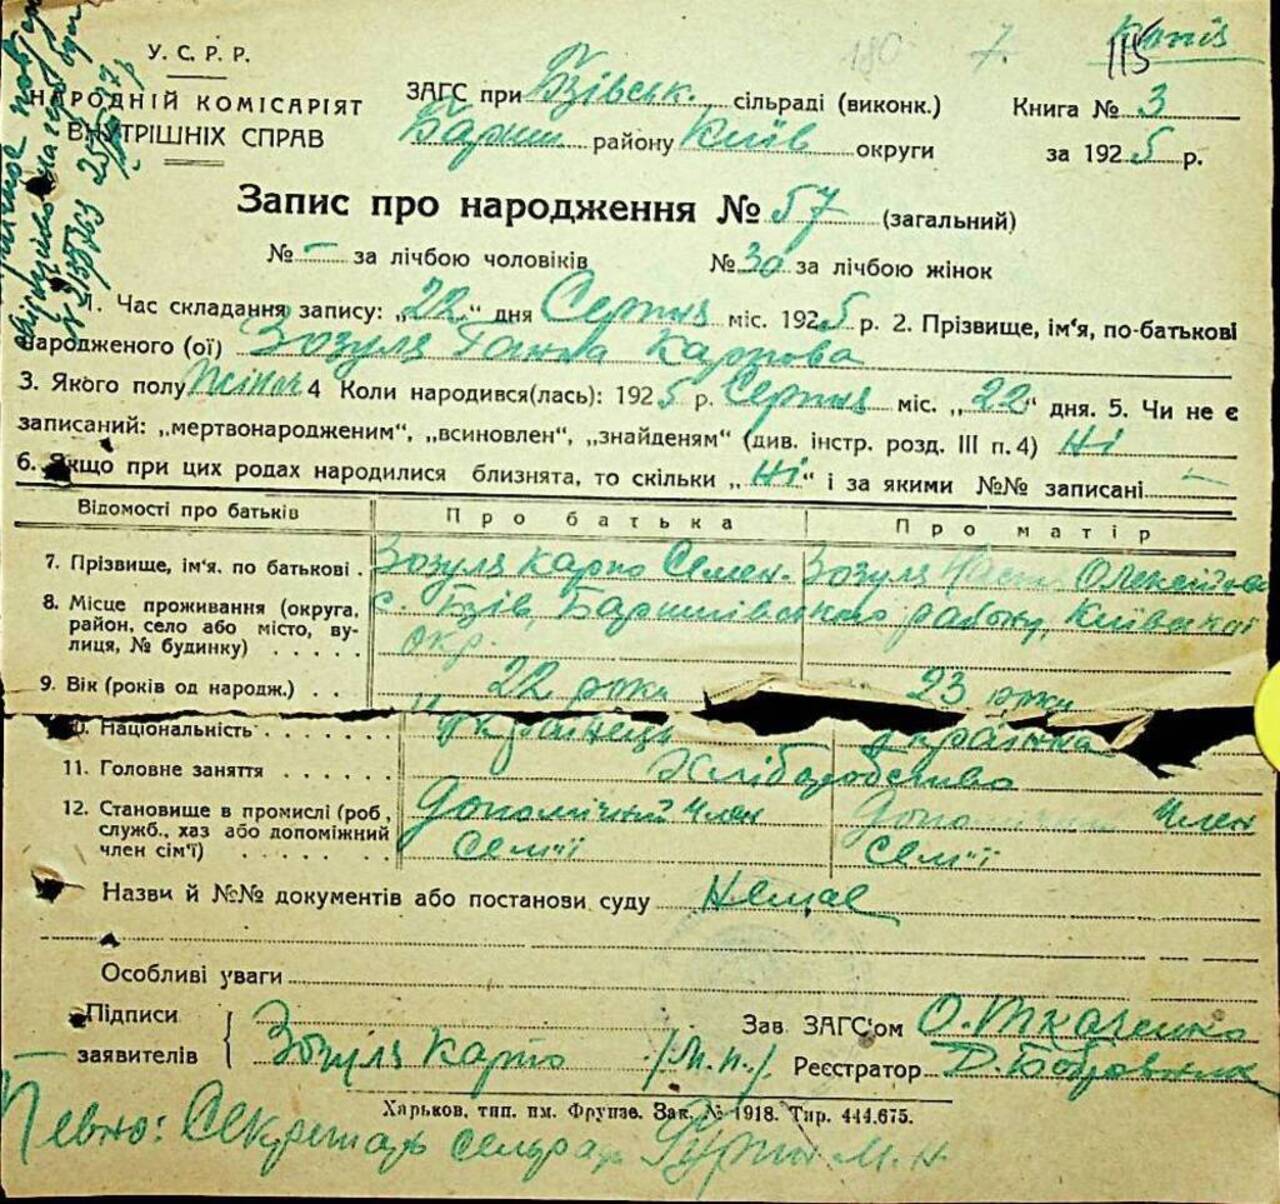 Копія
180 7. 115
У. С. Р. Р.
НАРОДНІЙ КОМІСАРІЯТ
ВНУТРІШНІХ СПРАВ
ЗАГС при Бзівськ. сільраді (виконк.)
Бариш. району Київ округи
Книга № 3
за 1925 р.
Запис про народження № 57 (загальний)
№ — за лічбою чоловіків № 30 за лічбою жінок
1. Час складання запису: „22“ дня Серпня міс. 1925 р. 2. Прізвище, ім‘я, по-батькові
народженого (ої) Зозуля Ганна Карпова
3. Якого полу жіноч 4 Коли народився(лась): 1925 р. Серпня міс. „22“ дня. 5. Чи не є
записаний: „мертвонародженим“, „всиновлен“, „знайденям“ (див. інстр. розд. III п. 4) Ні
6. Якщо при цих родах народилися близнята, то скільки „Ні“ і за якими №№ записані —
Відомості про батьків Про батька Про матір
7. Прізвище, ім‘я, по батькові . Зозуля Карпо Семен. Зозуля Настя Олексійовна
8. Місце проживання (округа, с. Бзів, Баришівського району, Київської
район, село або місто, ву- окр.
лиця, № будинку) . . . . .
9. Вік (років од народж.) . . 22 роки 23 роки
10. Національність . . . . . . . українець українка
11. Головне заняття . . . . . . Хліборобство
12. Становище в промислі (роб, Допомічний член Допомічний член
служб., хаз або допоміжний Сем'ї Сем'ї
член сім‘ї) . . . . . .
Назви й №№ документів або постанови суду Немає
Особливі уваги
Підписи
заявителів Зозуля Карпо /М.п./
Зав. ЗАГС‘ом О. Ткаченко
Реєстратор Д. Бобровник
Харьков, тип. им. Фрунзе. Зак. № 1918. Тир. 444.675.
Певно: Секретарь сельрад